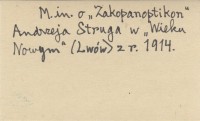 M.in. o „Zakopanoptikon"
Andrzeja Struga w „Wieku
Nowym" (Lwów) z r. 1914.